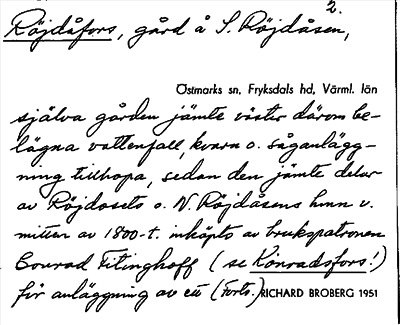 2.
Röjdåfors, gård å S. Röjdåsen,
Östmarks sn, Fryksdals hd, Värml. län
själva gården jämte väster därom be-
lägna vattenfall, kvarn o. såganlägg-
ning tillhopa, sedan den jämte delar
av Röjdosets o. N. Röjdåsens hmn v.
mitten av 1800-t. inköpts av brukspatronen
Conrad Fitinghoff (se Konradsfors!)
för anläggning av ett (Forts.) RICHARD BROBERG 1951